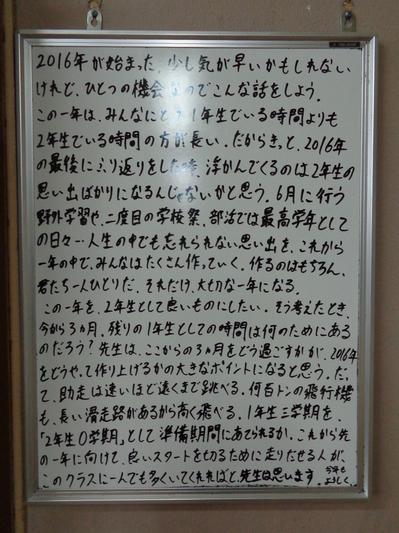 2016年が始まった。少し気が早いかもしれない
けれど、ひとつの機会なのでこんな話をしよう。
この一年は、みんなにとって1年生でいる時間よりも
2年生でいる時間の方が長い。だからきっと、2016年
の最後にふり返りをした時、浮かんでくるのは2年生の
思い出ばかりになるんじゃないかと思う。6月に行う
野外学習や、二度目の学校祭、部活では最高学年として
の日々…人生の中でも忘れられない思い出を、これから
一年の中で、みんなはたくさん作っていく。作るのはもちろん、
君たち一人ひとりだ。それだけ、大切な一年になる。
この一年を、2年生として良いものにしたい。そう考えたとき、
今から3ヵ月、残りの1年生としての時間は何のためにある
のだろう？先生は、ここからの3ヵ月をどう過ごすかが、2016年
をどうやって作り上げるかの大きなポイントになると思う。だっ
て、助走は速いほど遠くまで跳べる。何百トンの飛行機
も、長い滑走路があるから高く飛べる。1年生三学期を
「2年生0学期」として準備期間にあてられるか。これから先
の一年に向けて、良いスタートを切るために走りだせる人が、
このクラスに一人でも多くいてくれればと、先生は思います。今年も
よろしく